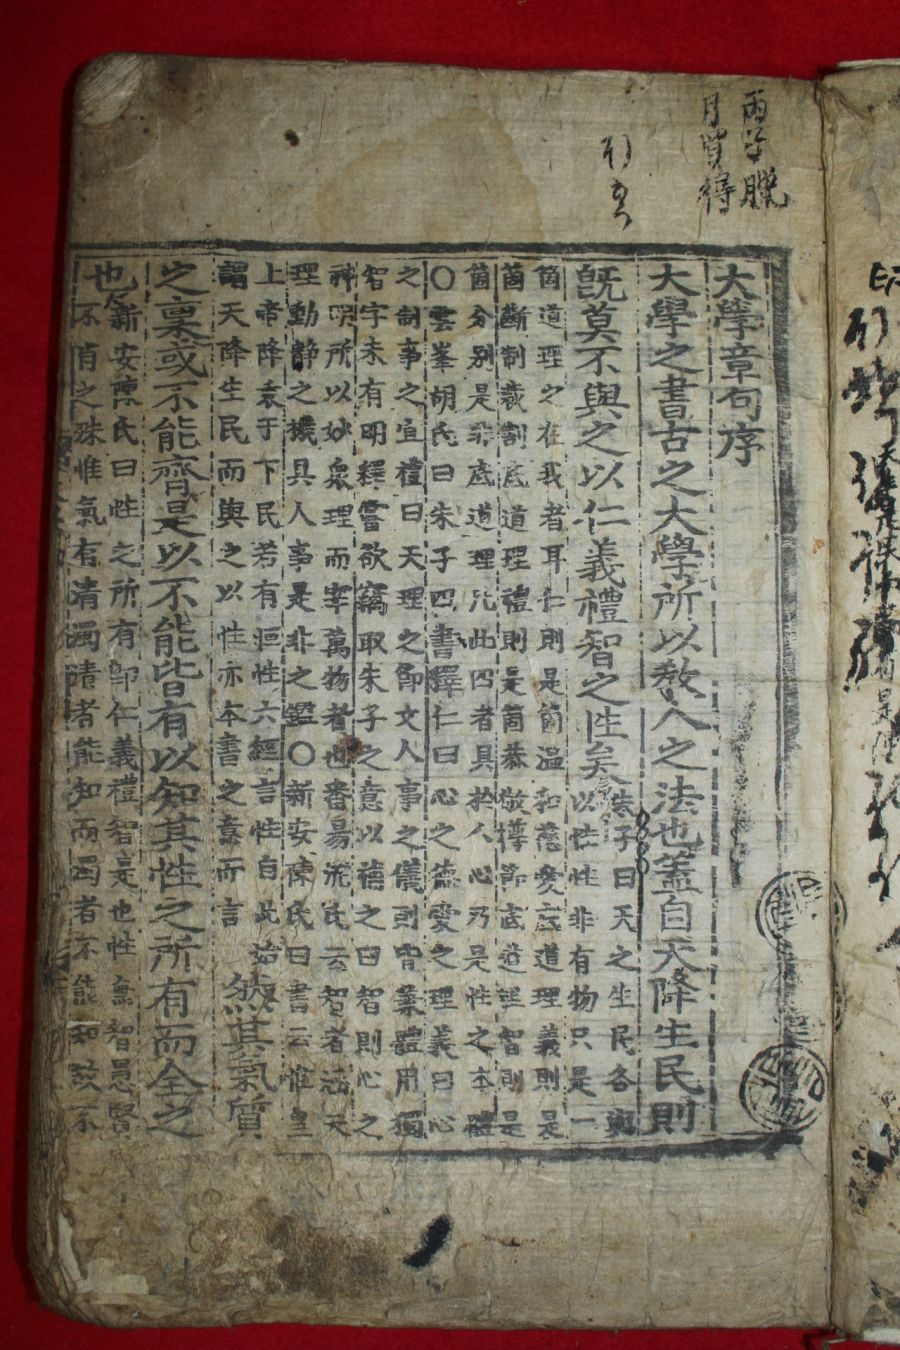 丙子臘
月買得
大學章句序
大學之書古之大學所以教人之法也蓋自天降生民則
旣莫不與之以仁義禮智之性矣
朱子曰天之生民各與
以性性非有物只是一
箇道理之在我者耳仁則是箇溫和慈愛底道理義則是
箇斷制裁割底道理禮則是箇恭敬撙節底道理智則是
箇分別是非底道理凡此四者具於人心乃是性之本體
○雲峯胡氏曰朱子四書釋仁曰心之德愛之理義曰心
之制事之宜禮曰天理之節文人事之儀則皆兼體用獨
智字未有明釋嘗欲竊取朱子之意以補之曰智則心之
神明所以妙衆理而宰萬物者也番昜沈氏云智者涵天
理動靜之機具人事是非之鑑○新安陳氏曰書云惟皇
上帝降衷于下民若有恒性六經言性自此始
謂天降生民而與之以性亦本書之意而言
然其氣質
之稟或不能齊是以不能皆有以知其性之所有而全之
也
新安陳氏曰性之所有卽仁義禮智是也性無智愚賢
不肖之殊惟氣有淸濁淸者能知而濁者不能知故不